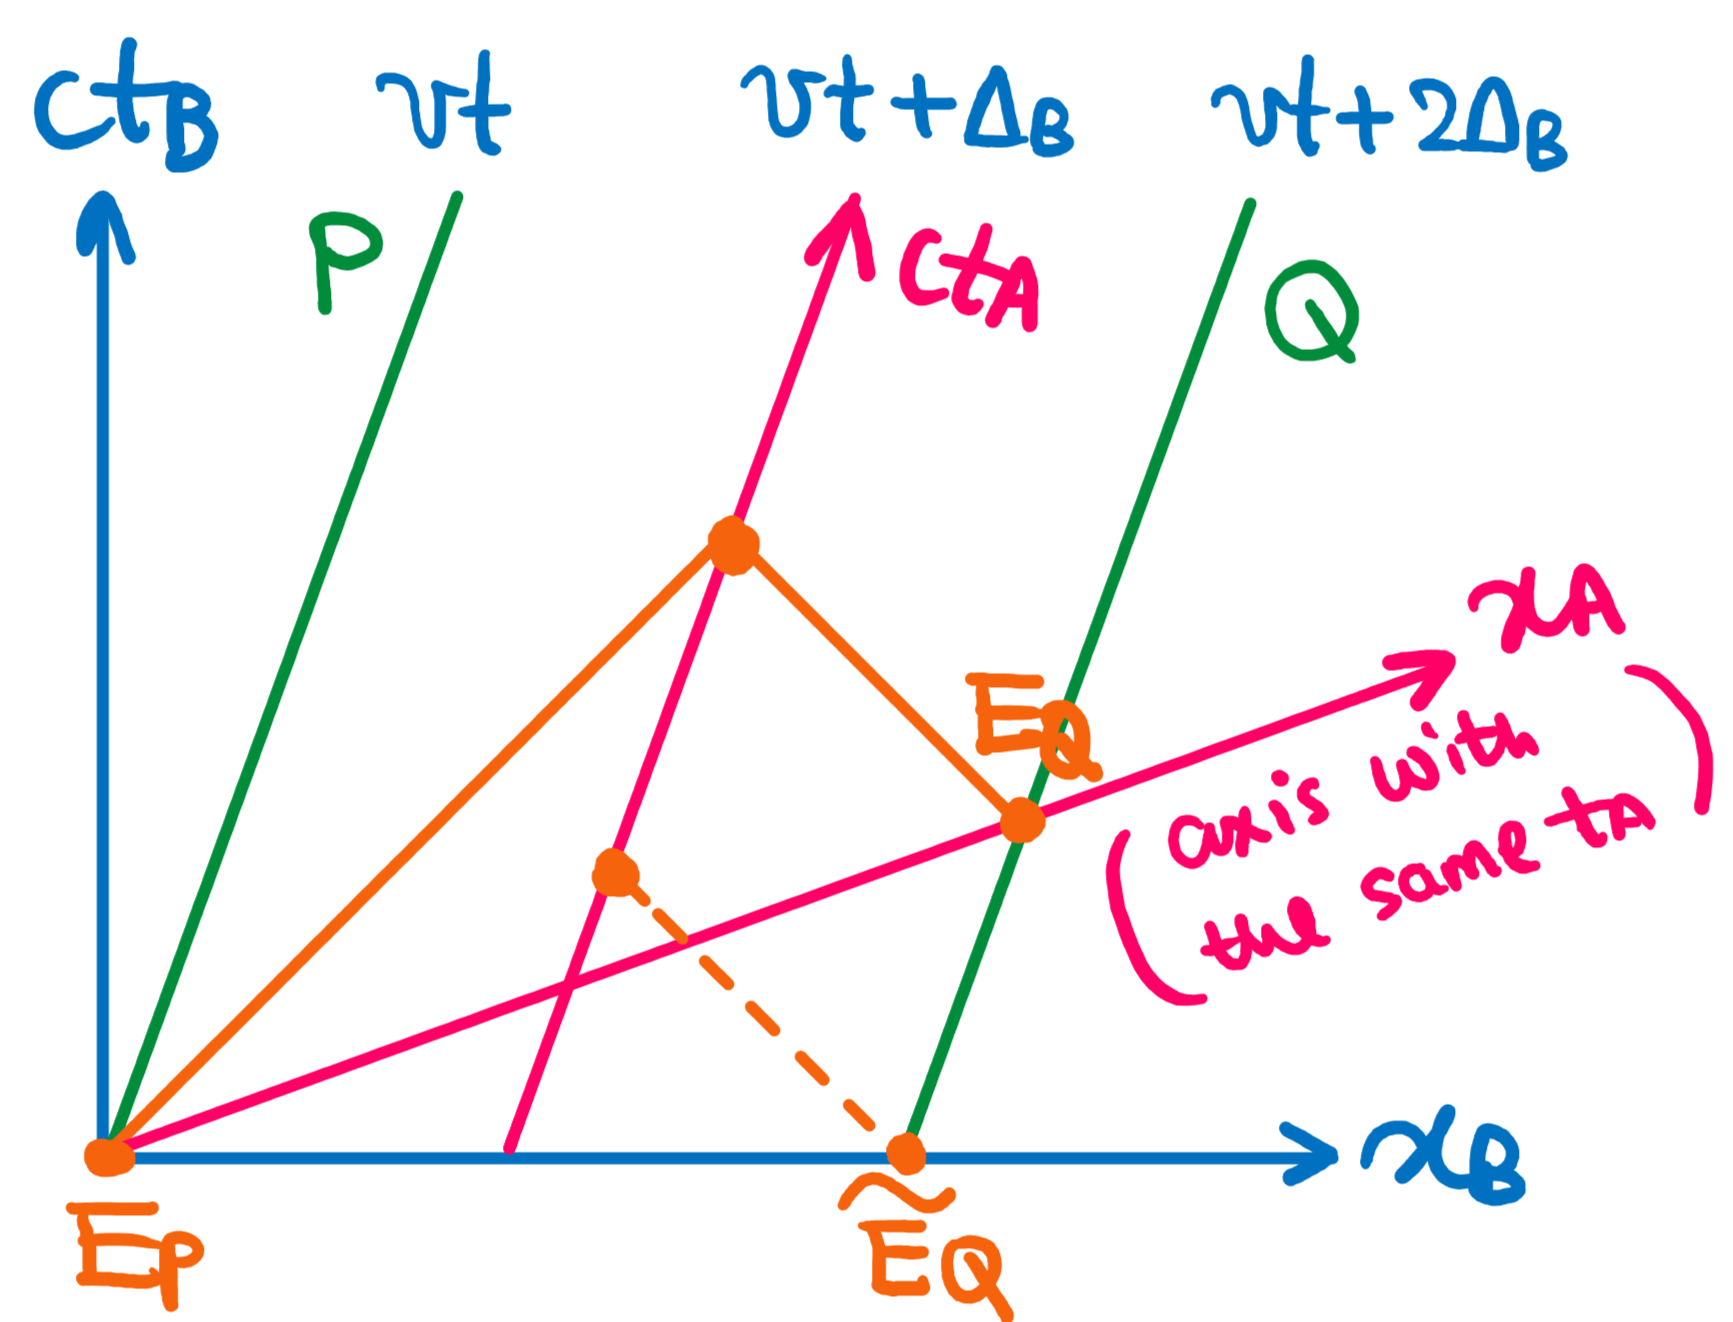 ctB
vt
vt+ΔB
vt+2ΔB
P
ctA
Q
xA
(axis with
the same tA)
EQ
xB
EP
ẼQ